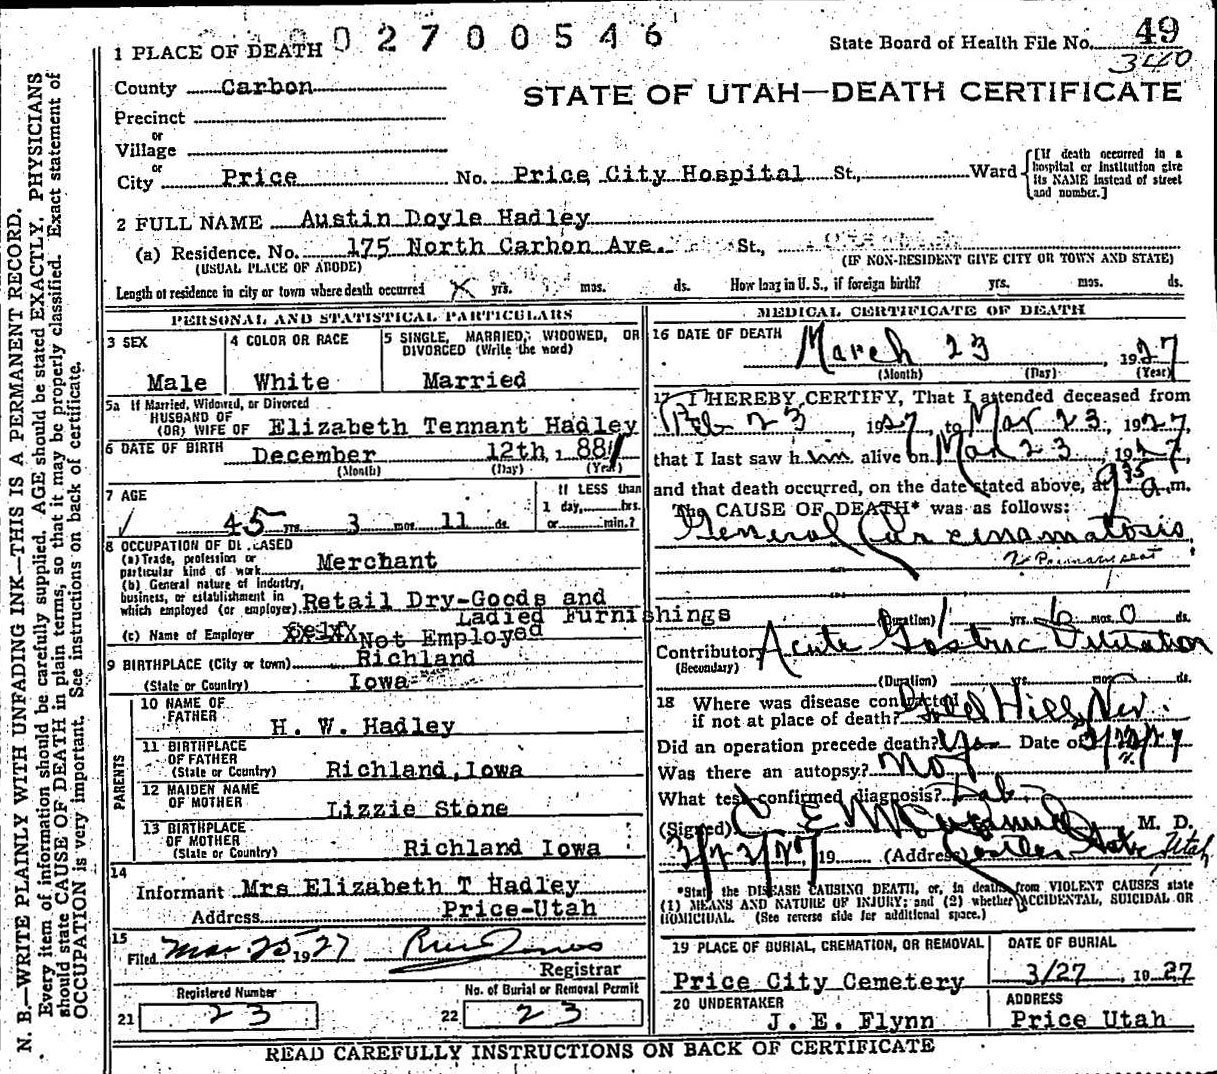 002700546
State Board of Health File No. 49
340
1 PLACE OF DEATH
County Carbon
STATE OF UTAH—DEATH CERTIFICATE
Precinct
or
Village
or
City Price No. Price City Hospital St., Ward
[If death occurred in a hospital or institution give its NAME instead of street and number.]
2 FULL NAME Austin Doyle Hadley
(a) Residence. No. 175 North Carbon Ave. St.,
(USUAL PLACE OF ABODE) (IF NON-RESIDENT GIVE CITY OR TOWN AND STATE)
Length of residence in city or town where death occurred X yrs. mos. ds. How long in U. S., if foreign birth? yrs. mos. ds.
PERSONAL AND STATISTICAL PARTICULARS
3 SEX
Male
4 COLOR OR RACE
White
5 SINGLE, MARRIED, WIDOWED, OR
DIVORCED (Write the word)
Married
5a If Married, Widowed, or Divorced
HUSBAND OF
(OR) WIFE OF Elizabeth Tennant Hadley
6 DATE OF BIRTH December 12th, 1881
(Month) (Day) (Year)
7 AGE
45 yrs. 3 mos. 11 ds.
If LESS than
1 day, hrs.
or min.?
8 OCCUPATION OF DECEASED
(a) Trade, profession or
particular kind of work Merchant
(b) General nature of industry,
business, or establishment in
which employed (or employer) Retail Dry-Goods and
Ladied Furnishings
(c) Name of Employer Not Employed
9 BIRTHPLACE (City or town) Richland
(State or Country) Iowa
PARENTS
10 NAME OF
FATHER H. W. Hadley
11 BIRTHPLACE
OF FATHER
(State or Country) Richland, Iowa
12 MAIDEN NAME
OF MOTHER Lizzie Stone
13 BIRTHPLACE
OF MOTHER
(State or Country) Richland Iowa
14
Informant Mrs Elizabeth T Hadley
Address Price-Utah
15
Filed Mar 25 1927
Registrar
Registered Number
21 23
No. of Burial or Removal Permit
22 23
MEDICAL CERTIFICATE OF DEATH
16 DATE OF DEATH March 23, 1927
(Month) (Day) (Year)
17 I HEREBY CERTIFY, That I attended deceased from
Feb 23, 1927, to Mar 23, 1927,
that I last saw him alive on Mar 23, 1927,
and that death occurred, on the date stated above, at 9 35 a.m.
The CAUSE OF DEATH* was as follows:
General Carcinamatosis
Primary seat
(Duration) yrs. 6 mos. 0 ds.
Contributory Acute Gastric Dilitation
(Secondary)
(Duration) yrs. mos. ds.
18 Where was disease contracted
if not at place of death? Gold Hill, Nev.
Did an operation precede death? Yes Date of
Was there an autopsy? No
What test confirmed diagnosis? Lab
(Signed) C E M. D.
3/23/27, 19 (Address) Castle Gate, Utah
*State the DISEASE CAUSING DEATH, or, in deaths from VIOLENT CAUSES state
(1) MEANS AND NATURE OF INJURY; and (2) whether ACCIDENTAL, SUICIDAL OR
HOMICIDAL. (See reverse side for additional space.)
19 PLACE OF BURIAL, CREMATION, OR REMOVAL
Price City Cemetery
DATE OF BURIAL
3/27, 1927
20 UNDERTAKER
J. E. Flynn
ADDRESS
Price Utah
READ CAREFULLY INSTRUCTIONS ON BACK OF CERTIFICATE
N. B.—WRITE PLAINLY WITH UNFADING INK—THIS IS A PERMANENT RECORD.
Every item of information should be carefully supplied. AGE should be stated EXACTLY. PHYSICIANS
should state CAUSE OF DEATH in plain terms, so that it may be properly classified. Exact statement of
OCCUPATION is very important. See instructions on back of certificate.